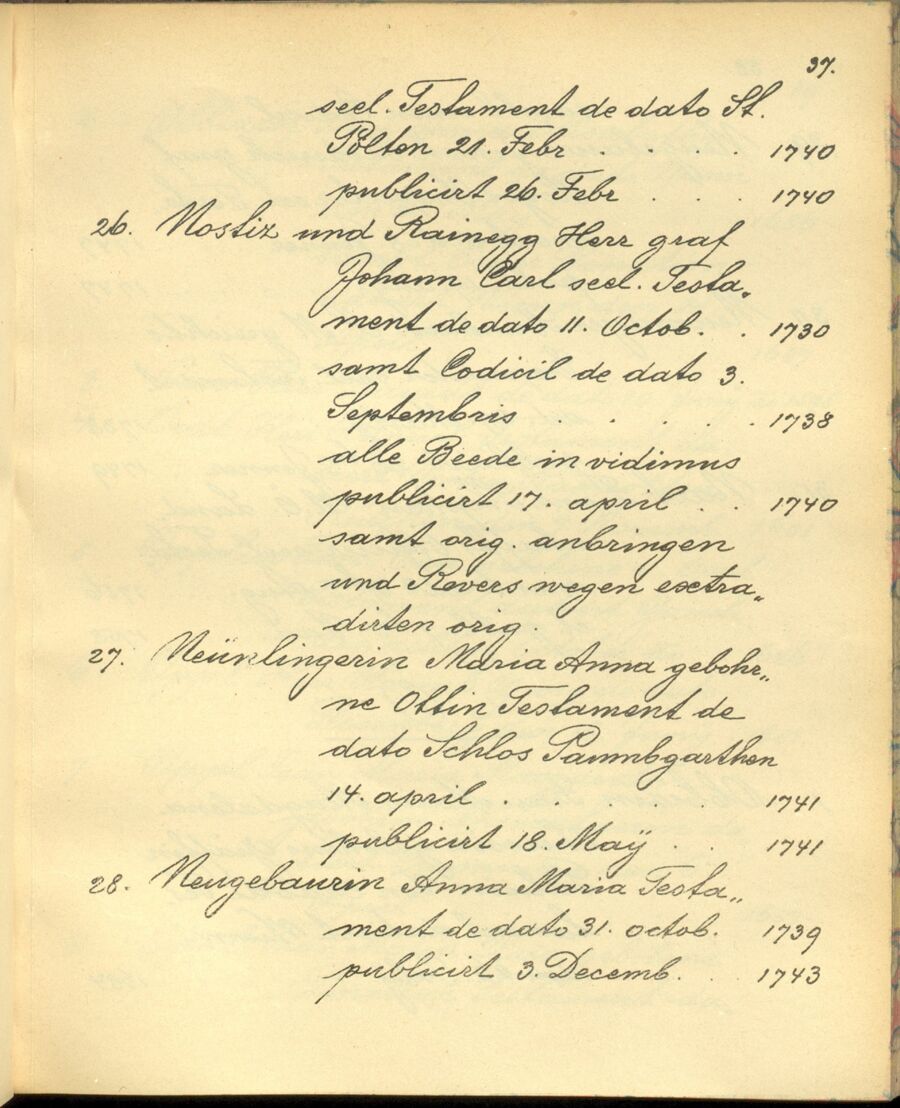 37.
seel. Testament de dato St.
Pölten 21. Febr . . . . 1740
publicirt 26. Febr . . . 1740
26. Nostiz und Rainegg Herr graf
Johann Carl seel. Testa„
ment de dato 11. Octob. . . 1730
samt Codicil de dato 3.
Septembris . . . . . 1738
alle Beede in vidimus
publicirt 17. april . . 1740
samt orig. anbringen
und Revers wegen extra„
dirten orig.
27. Neünlingerin Maria Anna gebohr„
ne Ottin Testament de
dato Schlos Paumbgarthen
14. april . . . . 1741
publicirt 18. Maÿ . . 1741
28. Neugebaurin Anna Maria Testa„
ment de dato 31. octob. 1739
publicirt 3. Decemb. . . 1743